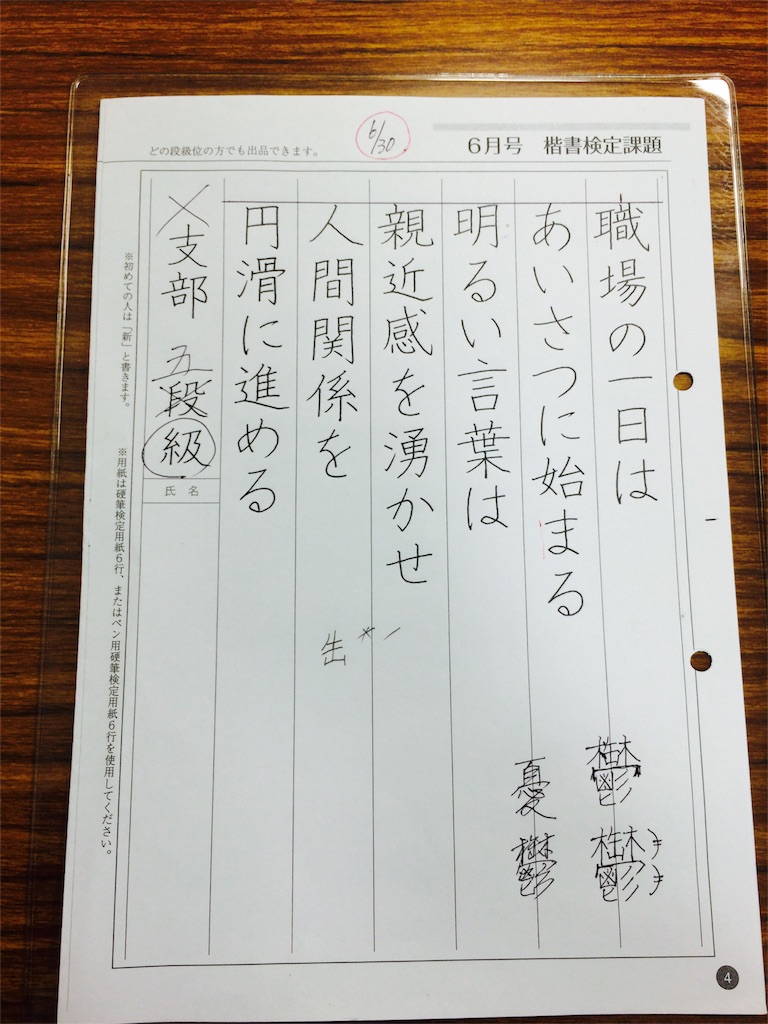 どの段級位の方でも出品できます。
6/30
6月号 楷書検定課題
職場の一日は
あいさつに始まる
明るい言葉は
親近感を湧かせ
人間関係を
円滑に進める
支部 五段
級
氏名
※初めての人は「新」と書きます。
※用紙は硬筆検定用紙6行、またはペン用硬筆検定用紙6行を使用してください。
鬱
鬱
憂鬱
4